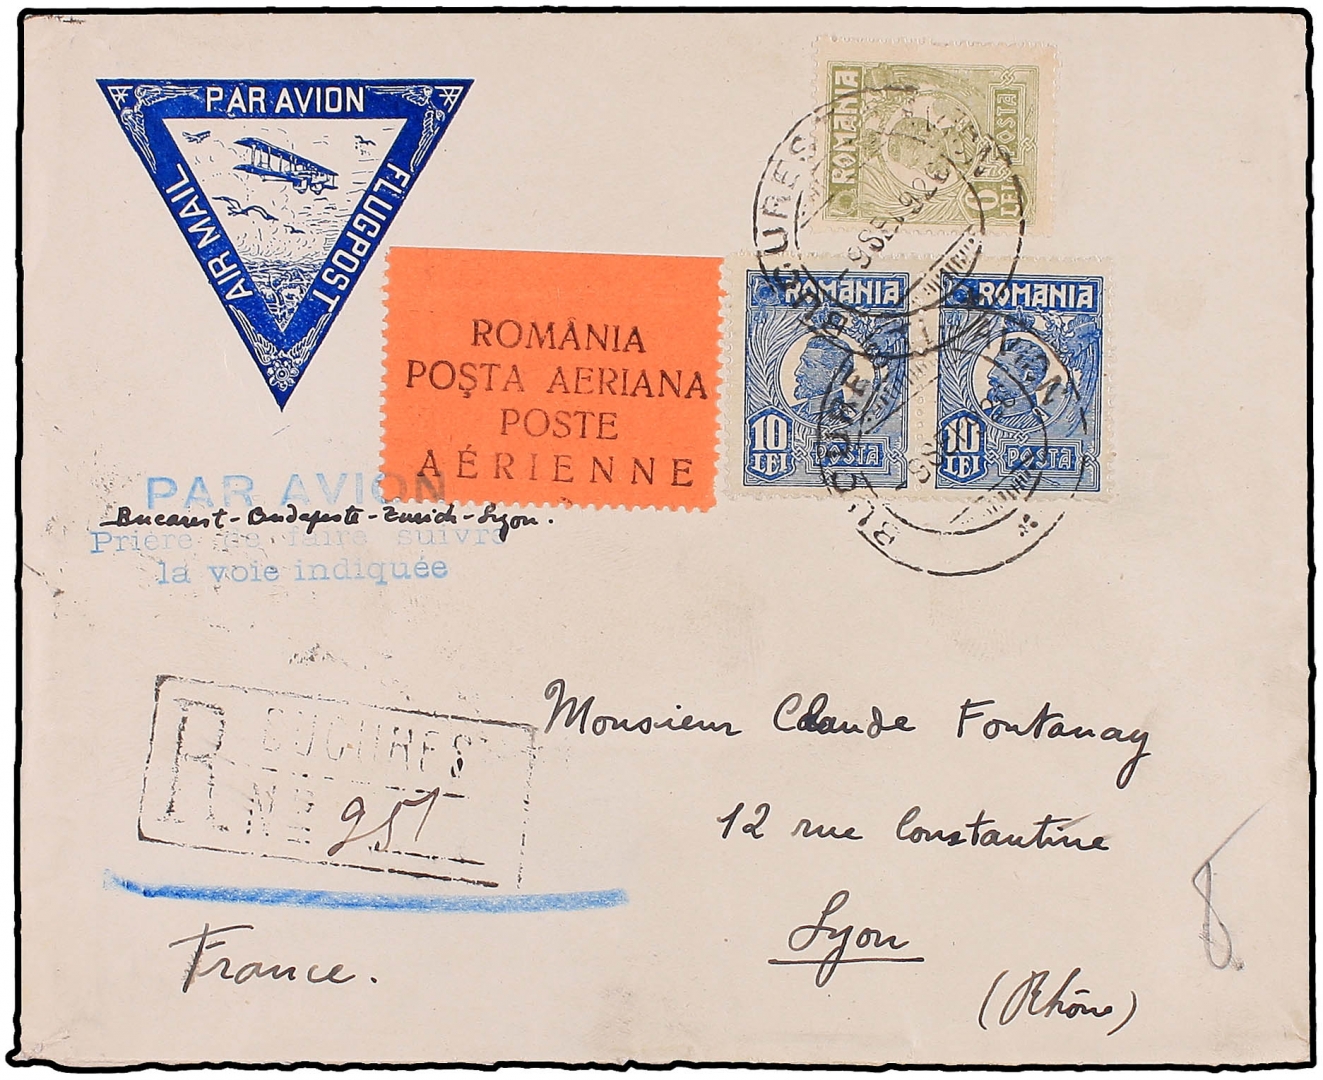 PAR AVION
AIR MAIL
FLUGPOST
ROMÂNIA
POŞTA AERIANA
POSTE
AÉRIENNE
ROMANIA
POSTA
6
LEI
ROMANIA
10
LEI
POSTA
ROMANIA
10
LEI
POSTA
BUCUREST
BUCUREST
PAR AVION
Bucarest-Budapeste-Zurich-Lyon.
Prière de faire suivre
la voie indiquée
R BUCUREST
No 951
Monsieur Claude Fontanay
12 rue Constantine
Lyon
(Rhône)
France.